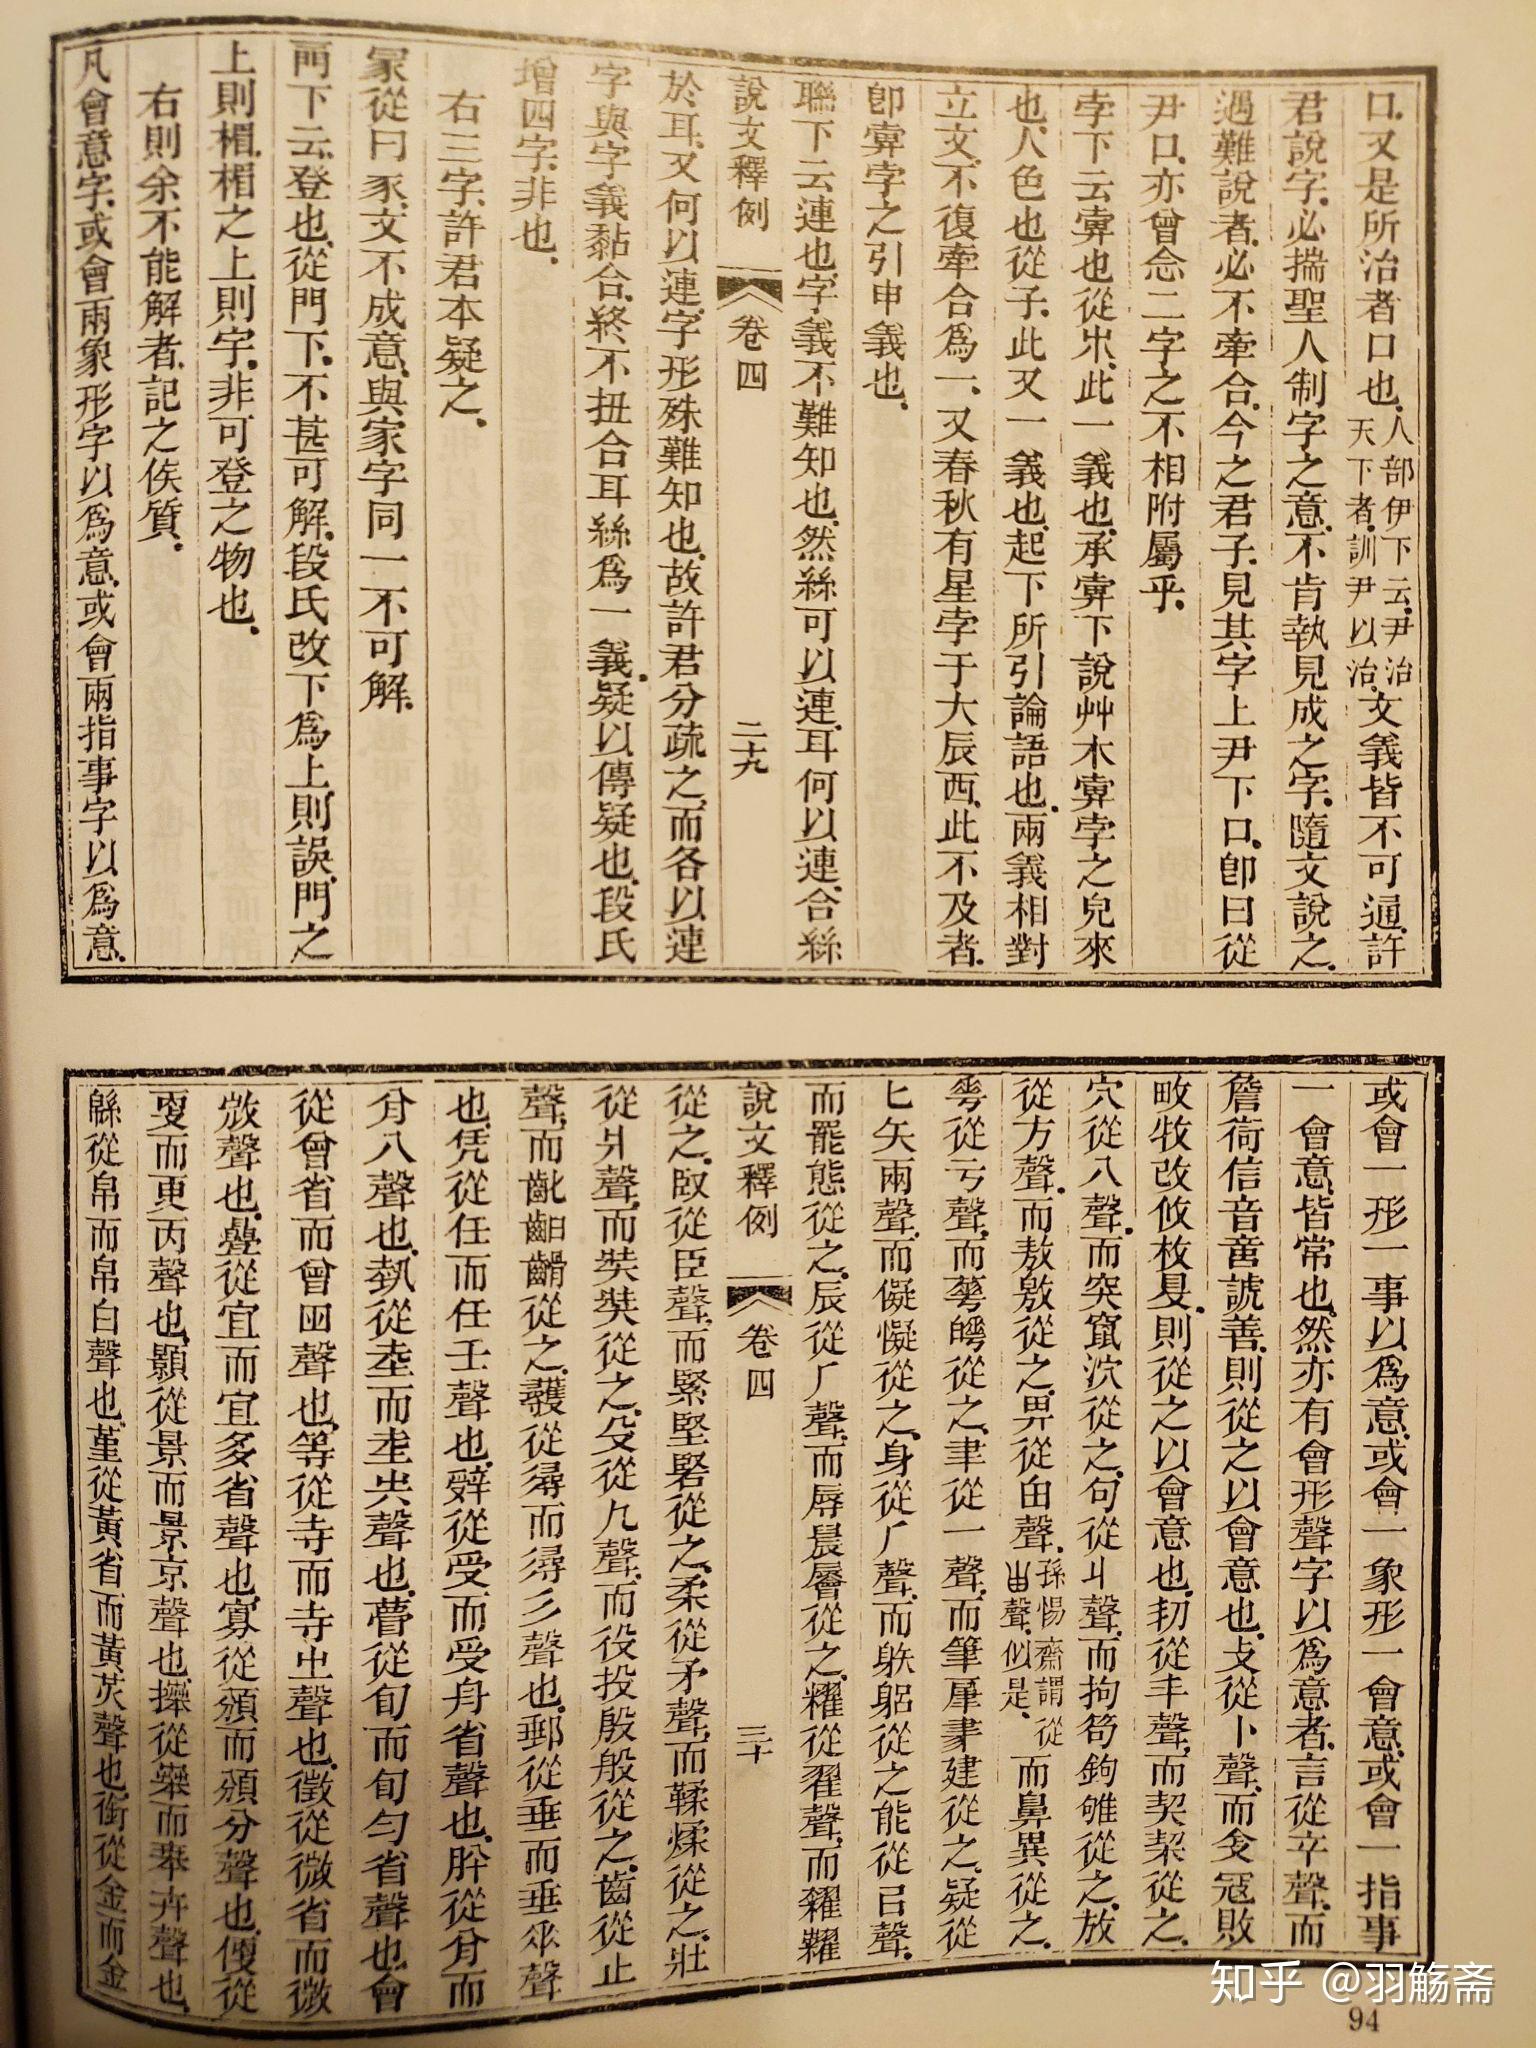 口又是所治者口也人部伊下云尹治天下者訓尹以治文義皆不可通許
君說字必揣聖人制字之意不肯執見成之字隨文說之
過難說者必不牽合今之君子見其字上尹下口卽曰從
尹口亦曾念二字之不相附屬乎
孛下云𡴀也從𣎵此一義也承𡴀下說艸木𡴀孛之皃來
也人色也從子此又一義也起下所引論語也兩義相對
立文不復牽合爲一又春秋有星孛于大辰西此不及者
卽𡴀孛之引申義也
聯下云連也字義不難知也然絲可以連耳何以連合絲
說文釋例 卷四 二十九
於耳又何以連字形殊難知也故許君分疏之而各以連
字與字義黏合終不扭合耳絲爲一義疑以傳疑也段氏
增四字非也
右三字許君本疑之
冡從冃豕文不成意與家字同一不可解
閅下云登也從門下不甚可解段氏改下爲上則誤門之
上則楣楣之上則宇非可登之物也
右則余不能解者記之俟質
凡會意字或會兩象形字以爲意或會兩指事字以爲意
或會一形一事以爲意或會一象形一會意或會一指事
一會意皆常也然亦有會形聲字以爲意者言從䇂聲而
詹䓷信音䇾諕善則從之以會意也攴從卜聲而㕝冦敗
畋牧改攸枚𡕥則從之以會意也㓞從丰聲而契栔從之
穴從八聲而突竄泬從之句從丩聲而拘笱鉤雊從之放
從方聲而敖敫從之畀從甶聲孫愓齋謂從甾聲似是而鼻異從之
𠌶從亏聲而𦾓𤾡從之聿從一聲而筆𦘠𦘔建從之疑從
匕矢兩聲而儗懝從之身從𠂆聲而躲躳從之能從㠯聲
而罷態從之辰從𠂆聲而辱晨蜃從之糴從翟聲而糶糴
說文釋例 卷四 三十
從之臤從臣聲而緊堅䝨從之柔從矛聲而鞣煣從之壯
從爿聲而奘弉從之殳從几聲而役投殷般從之齒從止
聲而齔𪗱齰從之彠從㝷而㝷彡聲也郵從垂而垂𠂹聲
也凭從任而任壬聲也辤從受而受舟省聲也肸從㕣而
㕣八聲也埶從坴而坴圥聲也瞢從旬而旬勻省聲也會
從曾省而曾囪聲也等從寺而寺㞢聲也徵從微省而微
𢼸聲也疊從宜而宜多省聲也寡從頒而頒分聲也㪅從
叟而更丙聲也顥從景而景京聲也𢷎從𠦪而𠦪卉聲也
緜從帛而帛白聲也堇從黃省而黃炗聲也銜從金而金
知乎 @羽觞斋
94